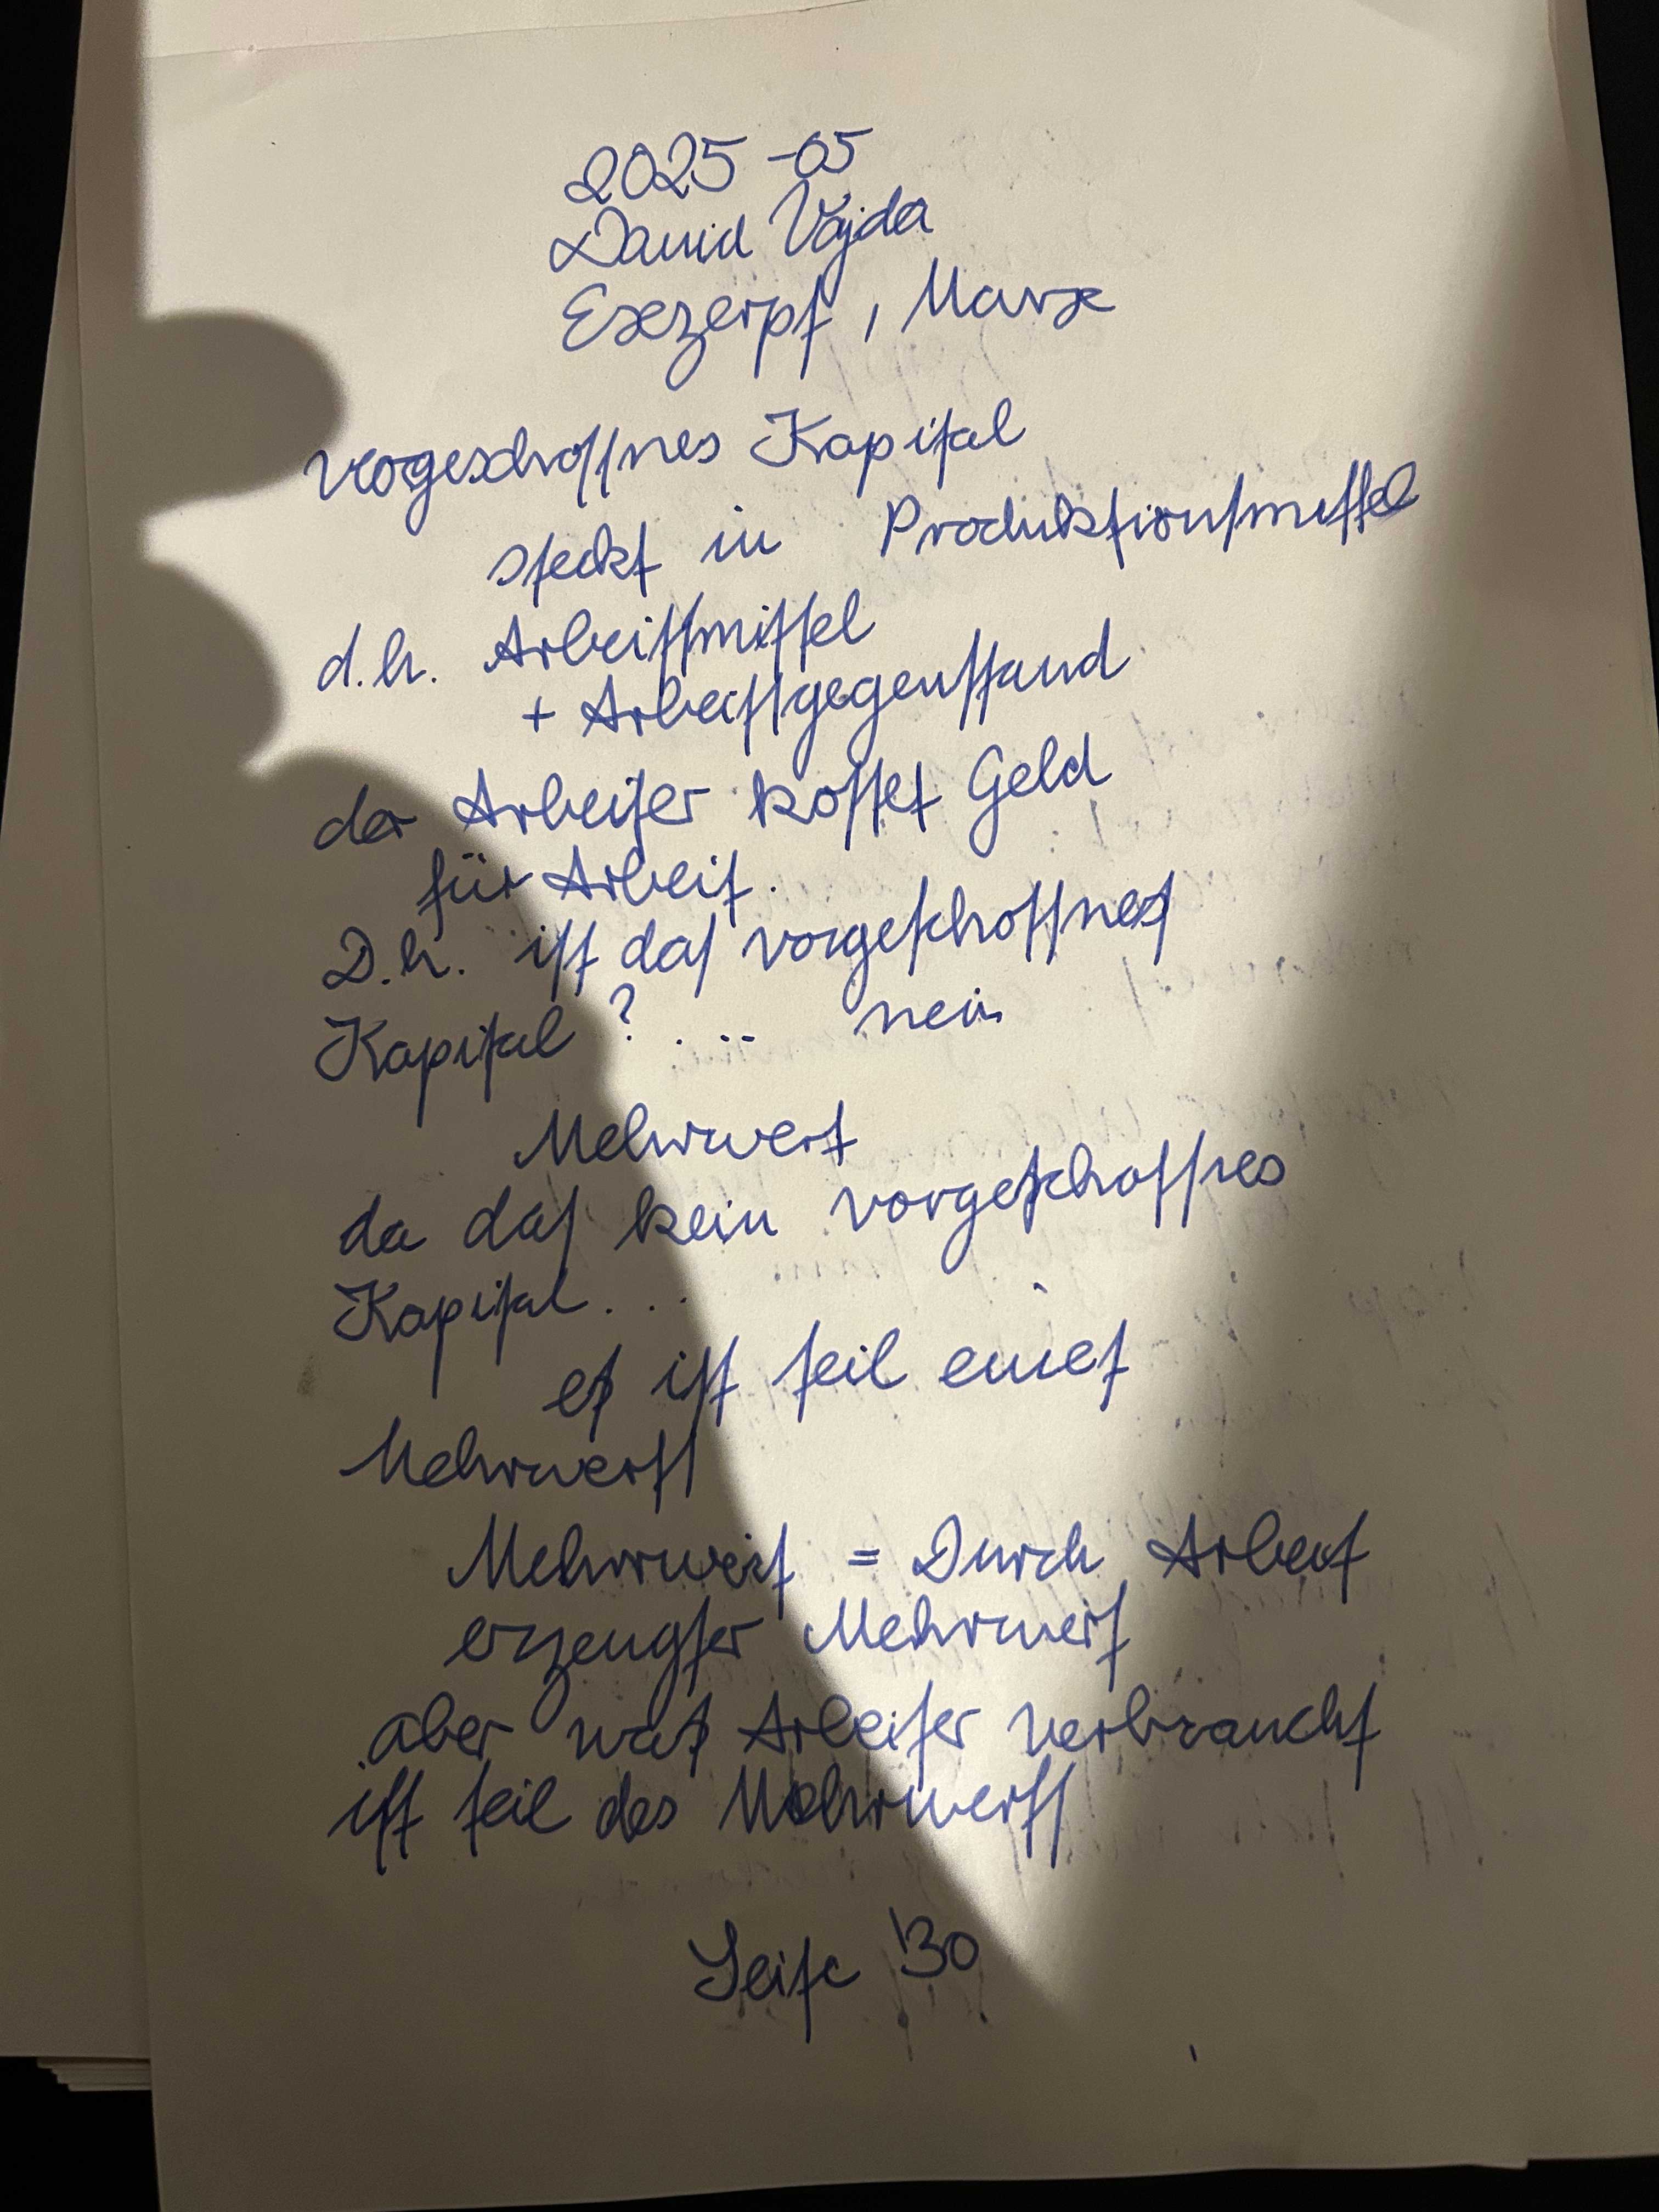 2025-05
David Vajda
Exzerpt, Marx
vorgeschossnes Kapital
steckt in Produktionsmittel
d.h. Arbeitsmittel
+ Arbeitsgegenstand
der Arbeiter kostet Geld
für Arbeit.
D.h. ist das vorgeschossnes
Kapital? ... nein
Mehrwert
da das kein vorgeschossnes
Kapital...
es ist teil eines
Mehrwerts
Mehrwert = Durch Arbeit
erzeugter Mehrwert
aber was Arbeiter verbraucht
ist teil des Mehrwerts
Seite 30